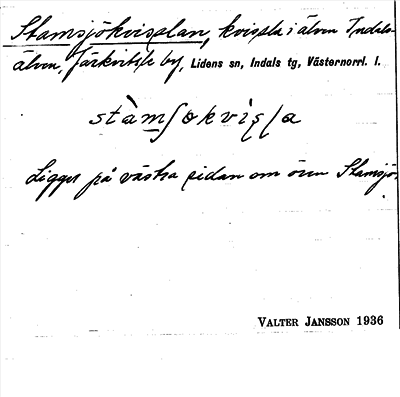 Stamsjökvisslan, kvissla i älven Indals-
älven, Järkvitsle by, Lidens sn, Indals tg, Västernorrl. l.
stàmʃøkvìsla
Ligger på västra sidan om ön Stamsjö.
VALTER JANSSON 1936